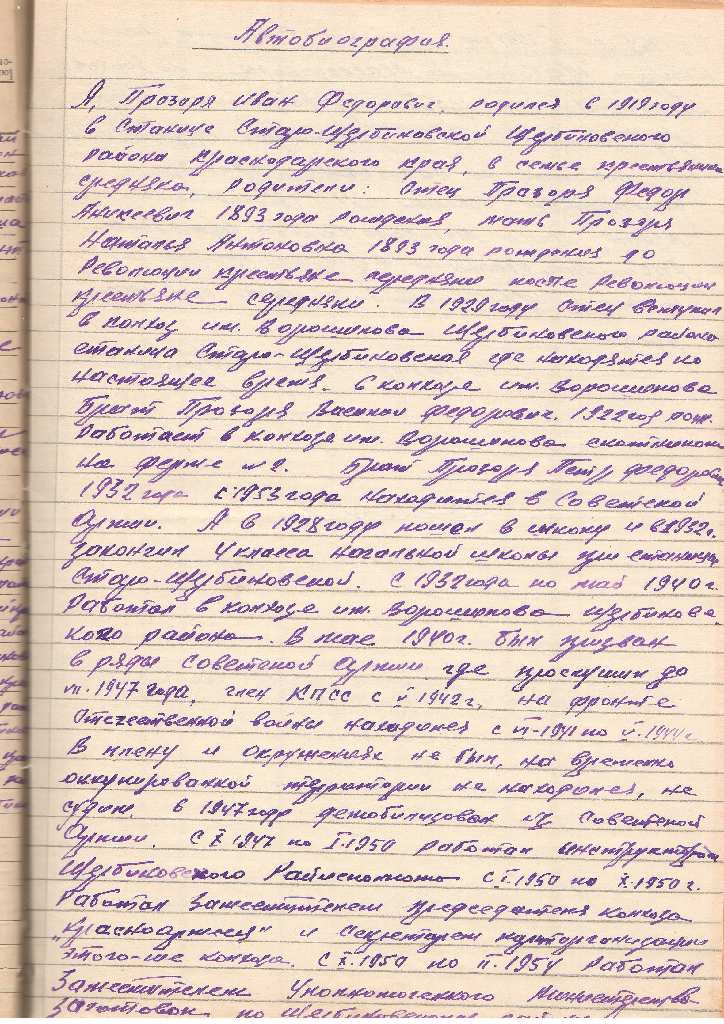 Автобиография.
Я, Прозоря Иван Федорович, родился в 1919 году
в Станице Старо-Щербиновской Щербиновского
района Краснодарского края, в семье крестьянина
середняка, родители: Отец Прозоря Федор
Аникеевич 1893 года рождения, мать Прозоря
Наталья Антоновна 1893 года рождения до
Революции крестьяне середняки после Революции
крестьяне середняки. В 1929 году отец вступил
в колхоз им. Ворошилова Щербиновского района
станица Старо-Щербиновская где находятся по
настоящее время. в колхозе им. Ворошилова
Брат Прозоря Василий Федорович. 1922 год рож.
Работает в колхозе им. Ворошилова скотником
на ферме №2. Брат Прозоря Петр Федорович
1932 года с 1953 года находится в Советской
Армии. А в 1928 году пошел в школу и в 1932 г.
закончил 4 класса начальной школы при станице
Старо-Щербиновской. С 1932 года по май 1940 г.
Работал в колхозе им. Ворошилова Щербиновс
кого района. В мае 1940 г. был призван
в ряды Советской Армии где прослужил до
1947 года, член КПСС с V 1942 г, на фронте
Отечественной войны находился с VI-1941 по V.1944 г.
В плену и окружениях не был, на временно
оккупированной территории не находился, не
судим. в 1947 году демобилизован из Советской
Армии. С X 1947 по I.1950 Работал инструктором
Щербиновского Райисполкома с I.1950 по X.1950 г.
Работал Заместителем председателя колхоза
„Красноармеец" и Секретарем парторганизации
этого-же колхоза. с XI.1950 по II.1954 Работал
Заместителем Уполномоченного Министерства
Заготовок по Щербиновскому